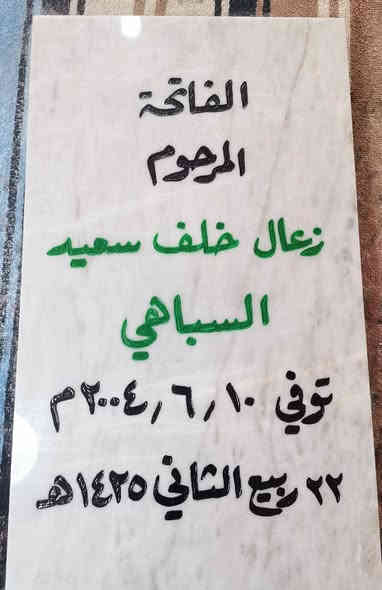 الفاتحة
المرحوم
زعال خلف سعيد
السباهي
توفي ١٠ / ٦ / ٢٠٠٤ م
٢٢ ربيع الثاني ١٤٢٥ هـ